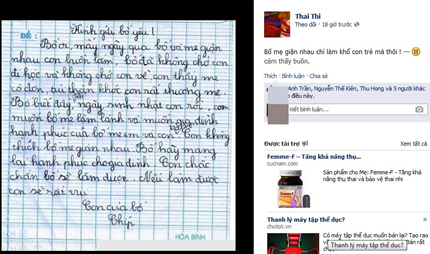 Kính gửi bố yêu!
ĐỀ:
Bố ơi, mấy ngày qua bố và mẹ giận
nhau con buồn lắm, bố đã không chở con
đi học và không chở con về con thấy mẹ
cô đơn, tủi thân khóc con rất thương mẹ.
Bố biết đấy, ngày sinh nhật con rồi, con
muốn bố mẹ làm lành và muốn gia đình
hạnh phúc của bố mẹ em và con. Con không
thích bố mẹ giận nhau. Bố hãy mang
lại hạnh phúc cho gia đình. Con chắc
chắn bố sẽ làm được. Nếu làm được
con sẽ rất vui
Con của bố
Chíp
HÒA BÌNH
Thai Thi
Theo dõi · 18 giờ trước
Bố mẹ giận nhau chỉ làm khổ con trẻ mà thôi ! —
cảm thấy buồn.
Thích · Bình luận · Chia sẻ
Anh Trần, Nguyễn Thế Kiên, Thu Hong và 5 người khác
điều này.
Viết bình luận...
Được tài trợ
Xem tất cả
Femme-F – Tăng khả năng thụ...
cucnam.com
Sản phẩm cho Mẹ: Femme-F - Tăng khả
năng thụ thai và bảo vệ thai nhi
Thanh lý máy tập thể dục?
chotot.vn
Có máy tập thể dục muốn bán lại? Tạo rao
Thanh lý máy tập thể dục?